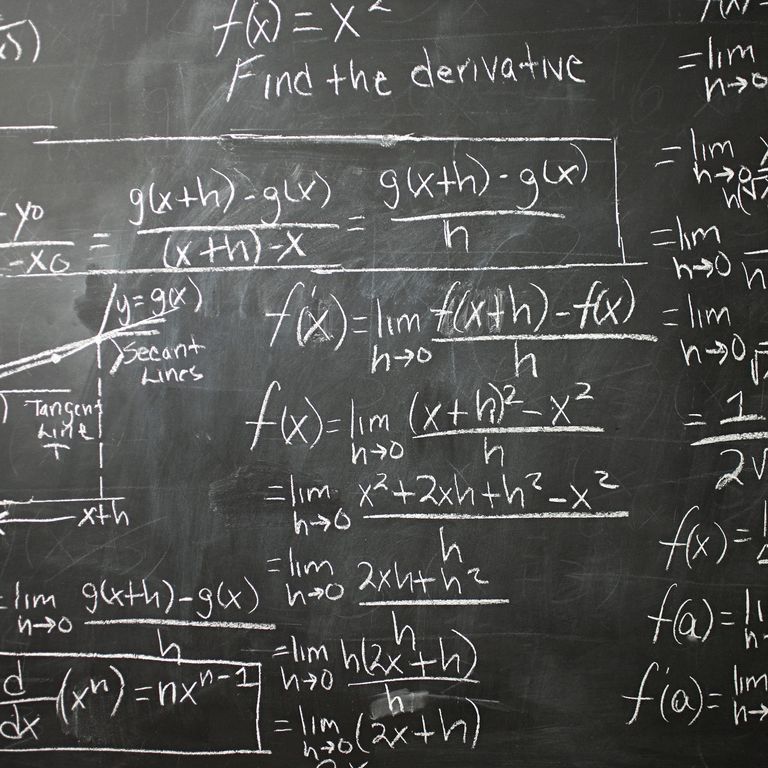 f(x) = x²
Find the derivative
= g(x+h) - g(x) / (x+h) - x = g(x+h) - g(x) / h
- y₀ / - x₀
y = g(x)
Secant
Lines
Tangent
Line
T
x+h
= lim h→0 g(x+h) - g(x) / h
d/dx (xⁿ) = nxⁿ⁻¹
f'(x) = lim h→0 f(x+h) - f(x) / h
f(x) = lim h→0 (x+h)² - x² / h
= lim h→0 x² + 2xh + h² - x² / h
= lim h→0 2xh + h² / h
= lim h→0 h(2x+h) / h
= lim h→0 (2x+h)
= lim h→0
= lim h→0
= lim h→0
= lim h→0
= 1 / 2√
f(x) =
f(a) =
f'(a) = lim h→